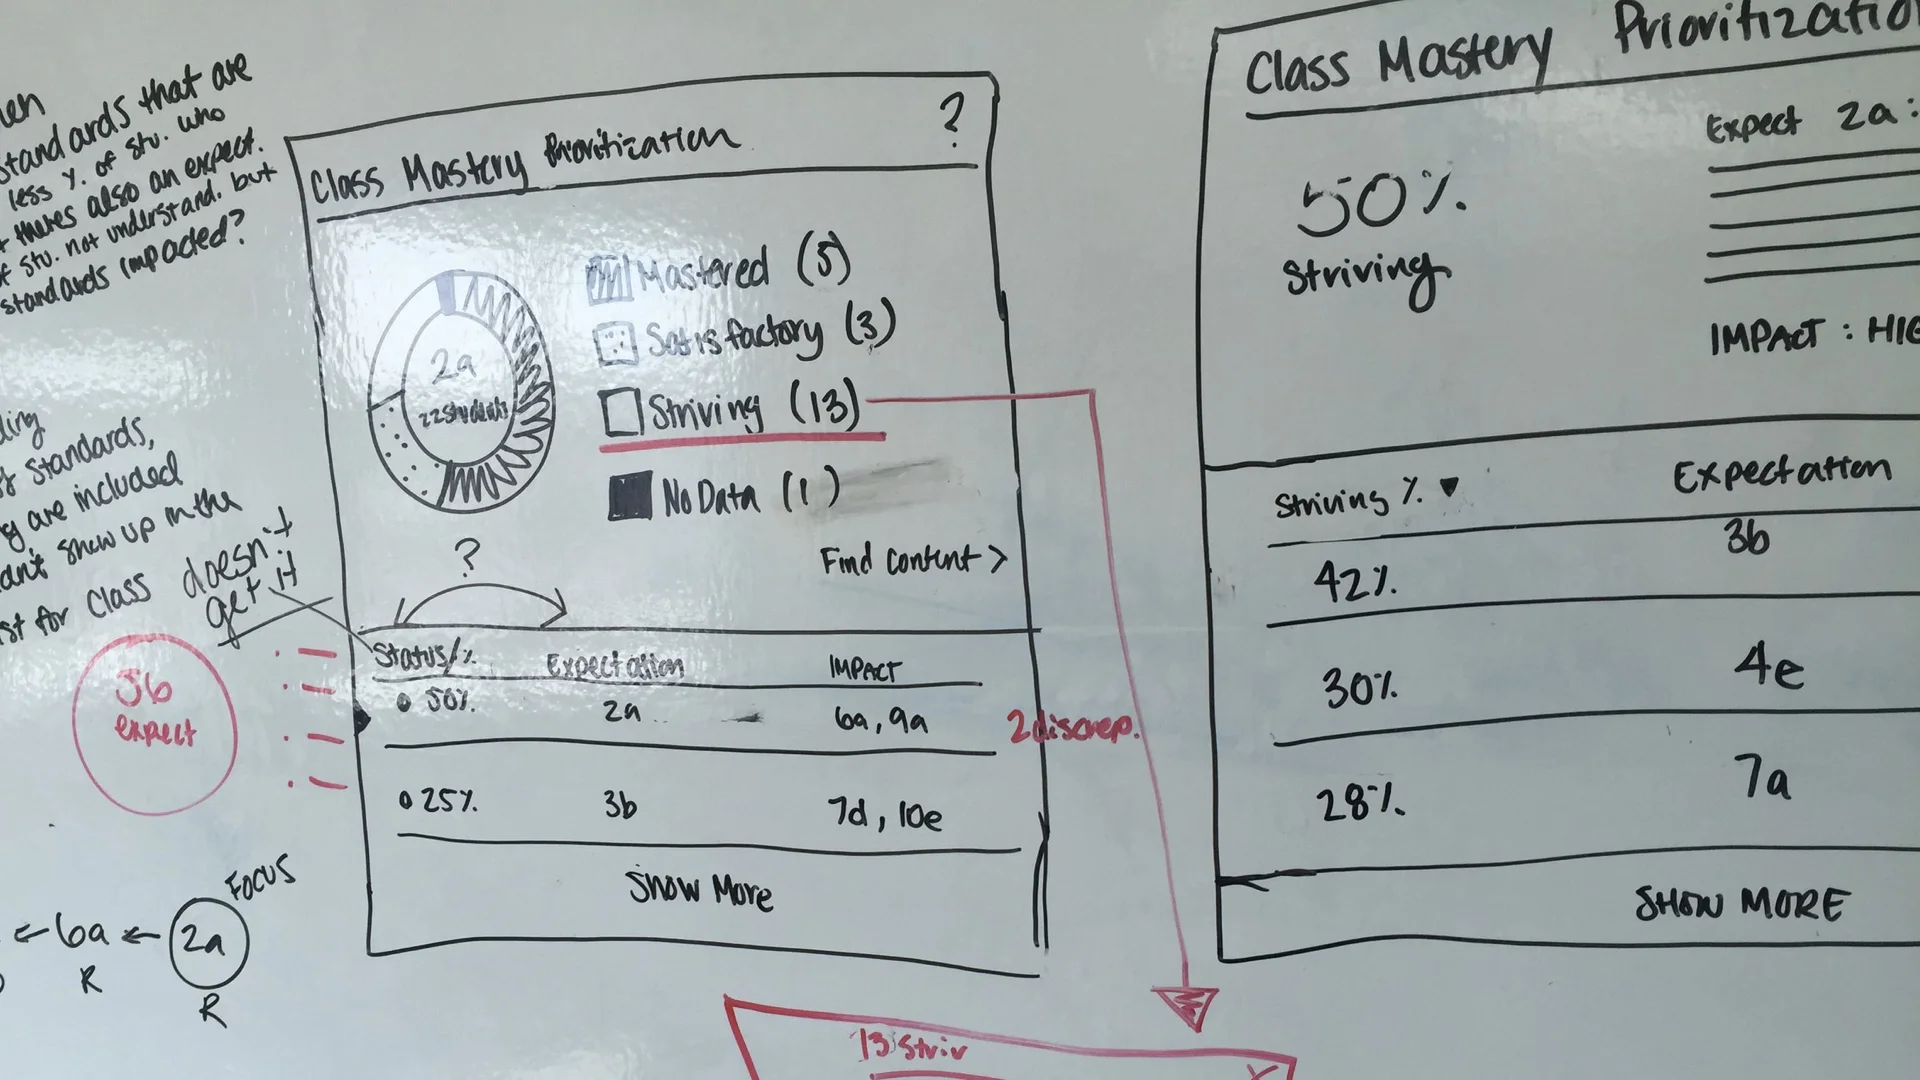 standards that are
less %. of stu. who
theres also an expect.
stu. not understand. but
standards impacted?
standards,
are included
show up in the
for Class doesn't
get it
36
expect
FOCUS
6a ← 2a
R
R
Class Mastery Prioritization
?
2a
22 students
Mastered (5)
Satisfactory (3)
Striving (13)
No Data (1)
Find Content >
?
Status/% Expectation IMPACT
50% 2a 6a, 9a
25% 3b 7d, 10e
Show More
2 discrep.
13 Striv
X
Class Mastery Prioritizatio
50%
Striving
Expect 2a:
IMPACT : HIG
Striving % ▼ Expectation
42% 3b
30% 4e
28% 7a
SHOW MORE